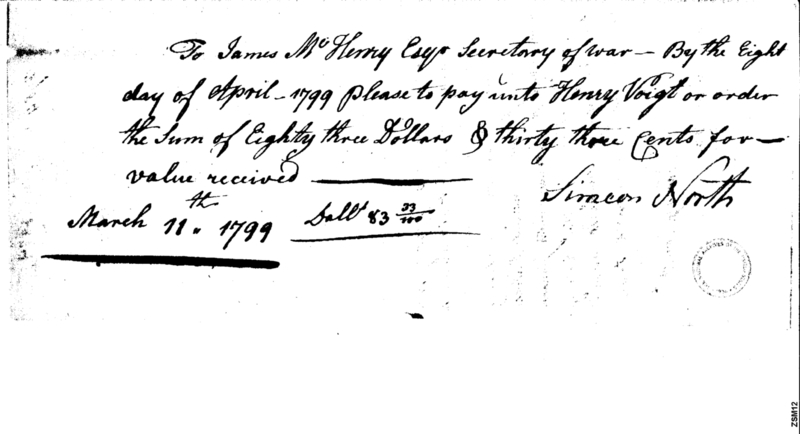 To James McHenry Esqr Secretary of war — By the Eight
day of April — 1799 Please to pay unto Henry Voigt or order
the Sum of Eighty three Dollars & thirty three Cents for —
value received
Simeon North
March 11th 1799 Dolls 83 33/100
ZSM12